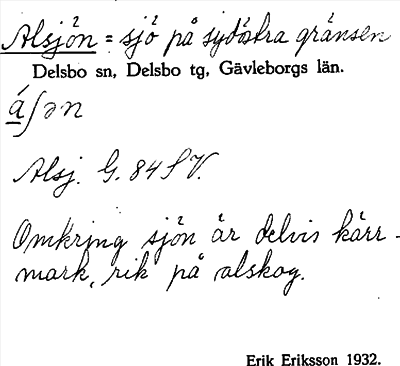 Alsjön = sjö på sydöstra gränsen
Delsbo sn, Delsbo tg, Gävleborgs län.
á ʃən
Alsj. G. 84 S V.
Omkring sjön är delvis kärr-
mark, rik på alskog.
Erik Eriksson 1932.